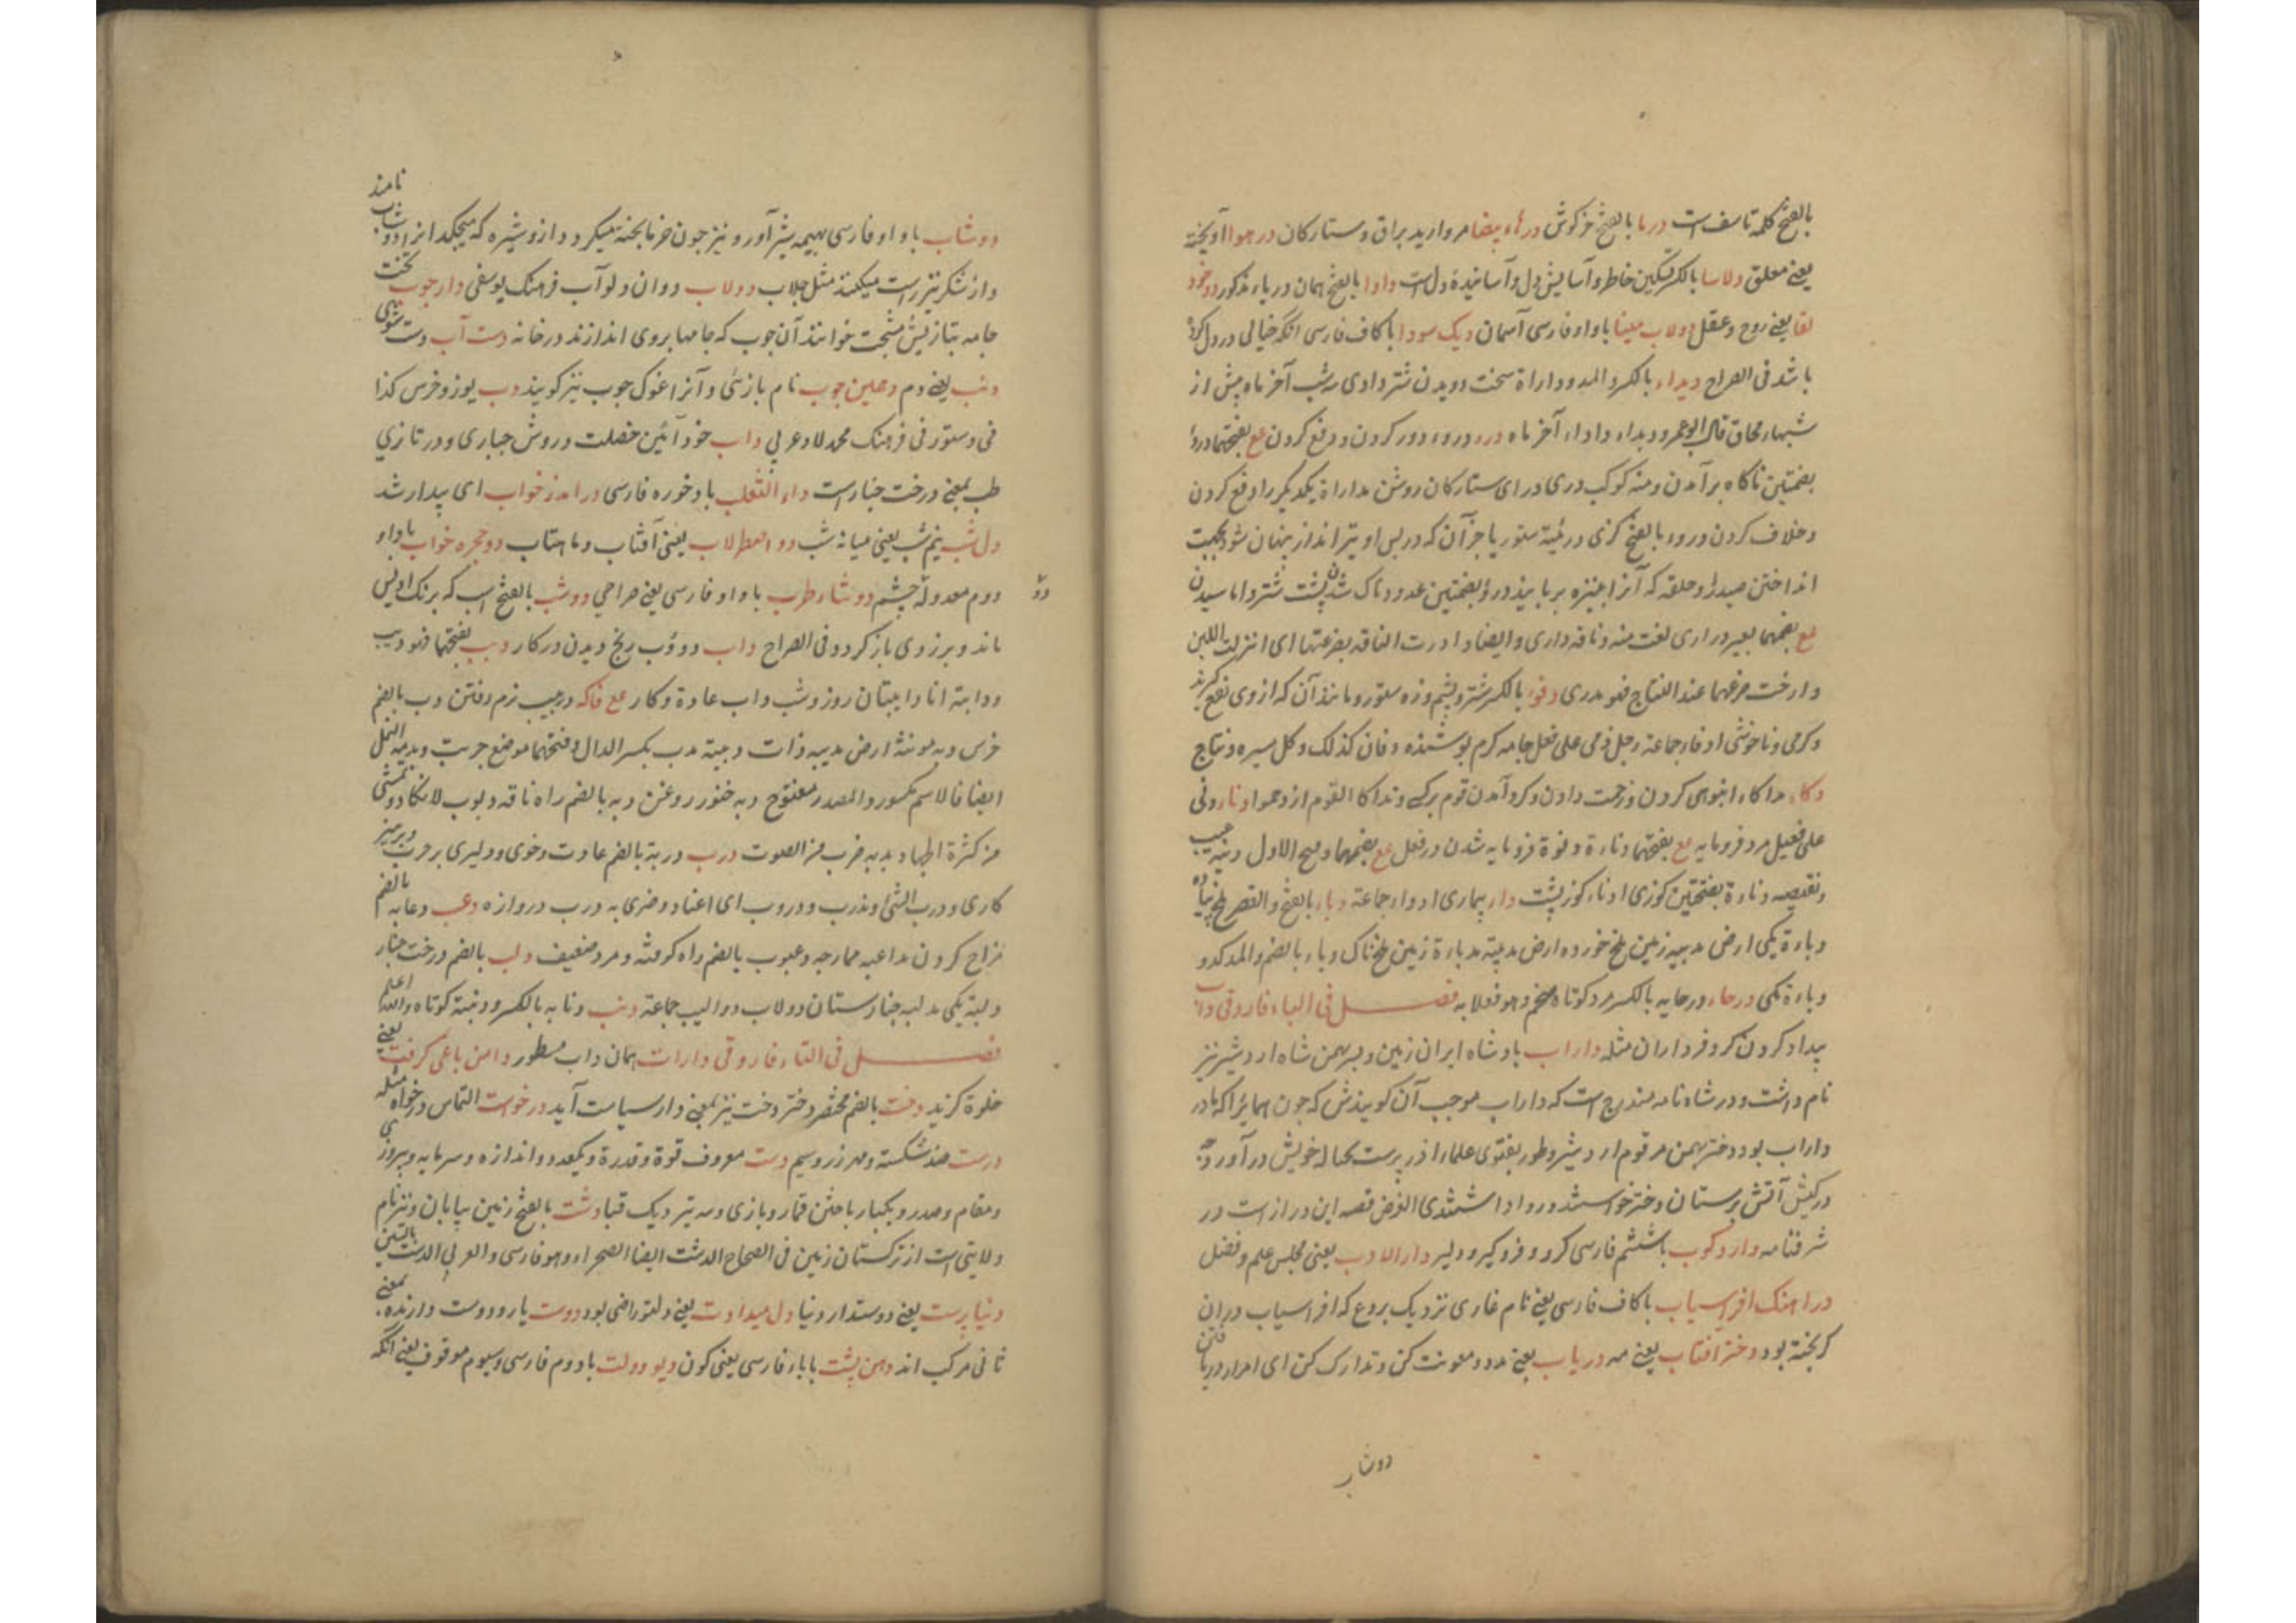 بالفتح کلمه تاسف است درما بالفتح خرکوش درهاء بیضا مروارید براق و ستارکان در هوا آویخته
یعنی معلق دلاسا بالکسر تسکین خاطر و آسایش دل و آسانیده دل است داوا بالفتح همان در باء مذکور
لقا یعنی روح و عقل دولاب مینا با واو فارسی آسمان دیک سودا با کاف فارسی انکه خیالی در دل کرده
باشد فی الصراح دیداء بالکسر و المد و داراة سخت دویدن شتر دادی سه شب آخر ماه پیش از
شبهاء محاق قال ابو عمرو دیداء داداء آخر ماه درء دروء دور کردن و دفع کردن مع بفتحتها
بضمتین ناکاه برآمدن و منه کوکب دری درای ستارکان روشن مداراة یکدیکر را دفع کردن
و خلاف کردن دروء بالفتح کژی دریئة ستور یا جز آن که در پس او تیرانداز پنهان شود بجهت
انداختن صید را و حلقه که آنرا بنیزه بربایند درؤ بضمتین غدود ناک شدن پشت شتر و اماسیدن
مع بضمهما بعیر داری لغت منه و ناقه داری و ایضا ادرت الناقه بضرعتها ای انزلت اللبن
و ارخت ضرعهما عند النتاج فهو مدری دفوء بالکسر شتر و پشم و زه ستور و مانند آن که از وی نفع کیرند
و کرمی و ناخوشی ادفاء جماعة رجل دفی علی فعل جامه کرم پوشنده دفان کذلک و کل میره و نتاج
دکاء مداکاء انبوهی کردن و زحمت دادن و کرد آمدن قوم بر کسی و تداکا القوم ازدحموا دناء دنی
علی فعیل مرد فرومایه مع بفتحهما دناءة دنوة فرومایه شدن در فعل مع بضمهما و مع الاول دنیه عیب
و نقیصه دناءة بفتحتین کوزی ادناء کوز پشت داء بیماری ادواء جماعة دباء بالفتح و القصر ملخ پیاده
دباءة یکی ارض مدبیه زمین ملخ خورده ارض مدبیة مدباءة زمین ملخ ناک دباء بالضم و المد کدو
دباءة یکی درحاء درحایه بالکسر مرد کوتاه ضخم و هو فعلایه فصل فی الباء فاروقی داب
پیدا کردن کر و فر داران مثله داراب بادشاه ایران زمین و پسر بهمن شاه اردشیر نیز
نام داشت و در شاه نامه مندرج است که داراب موجب آن کویندش که چون همای را که مادر
داراب بود دختر بهمن مرقوم اردشیر و طور بفتوی علماء آذر پرست بحباله خویش در آورد چه
در کیش آتش پرستان دختر خواستن روا داشتندی الغرض قصه این دراز است در
شرفنامه دار و کوب با ششم فارسی کر و فر و کیر و دلیر دار الادب یعنی مجلس علم و فضل
دراهنک افراسیاب با کاف فارسی یعنی نام غاری نزدیک بردع که افراسیاب در ان
کریخته بود دختر آفتاب یعنی می دریاب یعنی مدد و معونت کن و تدارک کن ای امر از دریافتن
دوشاب
دوشاب با واو فارسی بهیمه شیرآور و نیز چون خرما پخته میکردد از و شیره که میچکد انرا دوشاب نامند
و از شکر نیز راست میکنند مثل جلاب دولاب دوان دلو آب فرهنک یوسفی دارچوب تخت
جامه بتازیش مشجب خوانند آن چوب که جامها بروی اندازند در خانه دست آب دست شوی
دنب یعنی دم دهلین چوب نام بازئی و آنرا غوک چوب نیز کویند دب یوز و خرس کذا
فی دستور فی فرهنک محمد لاد عربی داب خود آئین خصلت و روش جباری و در تازی
طب بمعنی درخت چنار است داء الثعلب بادخوره فارسی درآمد ز خواب ای بیدار شد
دل شب نیم شب یعنی میانه شب دو اصطرلاب یعنی آفتاب و ماهتاب دو حجره خواب با واو
دوم معدوله چشم دوشاء طرب با واو فارسی یعنی صراحی دوشب بالفتح اسب که برنک ادیس
ماند و برزوی باز کردد فی الصراح داب دووب رنج دیدن در کار دبب بفتحتها فهو دبیب
ودابته انا دایبتان روز و شب داب عادة و کار مع فاکه دبیب نرم رفتن دب بالضم
خرس دبه مونثه ارض مدیبه ذات دببة مدب بکسر الدال و فتحها موضع جریت و مدب النمل
ایضا فالاسم مکسور و المصدر مفتوح دبه خنور روغن دبه بالضم راه ناقه دبوب لاتکاد تمشی
من کثرة الجها دبدبه ضرب من الصوت درب دربة بالضم عادت و خوی و دلیری بر حرب و بر هر چیز
کاری و درب الشئ و تدرب و دروب ای اعتاد و ضری به درب دروازه دعب دعابه بالضم
مزاح کردن مداعبه ممازحه دعبوب بالضم راه کوفته و مرد ضعیف دلب بالضم درخت چنار
دلبة یکی مدلبه چنارستان دولاب دوالیب جماعة دنب دنابه بالکسر و دنبة کوتاه و الله اعلم
فصل فی التاء فاروقی دارات همان داب مسطور دامن باغی کرفت یعنی
خلوة کزید دخت بالضم مختصر دختر دخت نیز بمعنی دار سیاست آید درخواست التماس در خواه مثله
درست ضد شکسته و مهر زر و سیم دست معروف قوة و قدرة و یکعدد و اندازه و سرمایه و پیروزی
و مقام و صدر و یکبار باختن قمار و بازی و سه تیر دیک قبا دشت بالفتح زمین بیابان و نیز نام
ولایتی است از ترکستان زمین فی الصحاح الدشت ایضا الصحراء و هو فارسی و العربی الدست بالسین
دنیا پرست یعنی دوستدار دنیا دل میداوت یعنی دلت راضی بود دوست یار و دوست دارنده بمعنی
ثانی مرکب اند دهن پشت با باء فارسی یعنی کون دیو دولت با دوم فارسی و سیوم موقوف یعنی انکه